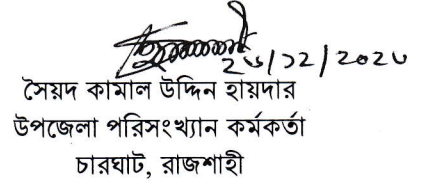 ২৬/১২/২০২৩
সৈয়দ কামাল উদ্দিন হায়দার
উপজেলা পরিসংখ্যান কর্মকর্তা
চারঘাট, রাজশাহী